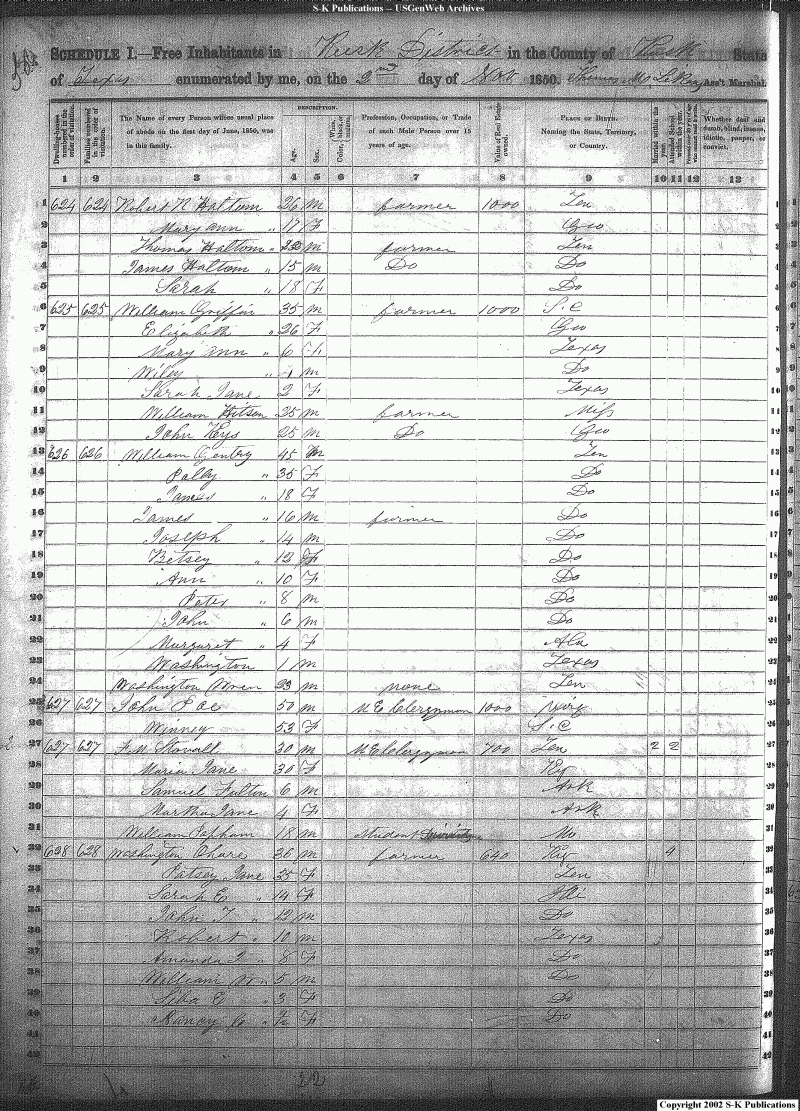 S-K Publications -- USGenWeb Archives
SCHEDULE I.—Free Inhabitants in Rusk District in the County of Rusk State
of Texas enumerated by me, on the 2nd day of Nov 1850. Ass't Marshal.
Dwelling-houses numbered in the order of visitation. Families numbered in the order of visitation. The Name of every Person whose usual place of abode on the first day of June, 1850, was in this family. DESCRIPTION. Age. Sex. White, Color, black, or mulatto. Profession, Occupation, or Trade of each Male Person over 15 years of age. Value of Real Estate owned. PLACE OF BIRTH. Naming the State, Territory, or Country. Married within the year. Attended School within the year. Whether deaf and dumb, blind, insane, idiotic, pauper, or convict.
1 2 3 4 5 6 7 8 9 10 11 12 13
1 624 624 Robert N Haltom 26 m farmer 1000 Ten 1
2 Mary ann " 17 F Geo 2
3 Thomas Haltom " m farmer Ten 3
4 James Haltom " 15 m Do Do 4
5 Sarah " 18 F Do 5
6 625 625 William Griffin 35 m farmer 1000 S.C 6
7 Elizabeth " 26 F Geo 7
8 Mary ann " 6 F Texas 8
9 Wiley " m Do 9
10 Sarah Jane 2 F Texas 10
11 William 25 m farmer Miss 11
12 John Keys 25 m Do Geo 12
13 626 626 William Gentry 45 m Ten 13
14 Polly " 35 F Do 14
15 " 18 F Do 15
16 James " 16 m farmer Do 16
17 Joseph " 14 m Do 17
18 Betsey " 12 F Do 18
19 Ann " 10 F Do 19
20 Peter " 8 m Do 20
21 John " 6 m Do 21
22 Margaret " 4 F Ala 22
23 Washington 1 m Texas 23
24 Washington 23 m none Ten 24
25 627 627 John Poe 50 m M E Clergyman 1000 Virg 25
26 Winney 53 F S.C 26
27 627 627 F M Stovall 30 m M E Clergyman 700 Ten 2 2 27
28 Maria Jane 30 F Ky 28
29 Samuel Fulton 6 m Ark 29
30 Martha Jane 4 F Ark 30
31 William 18 m Student Mo 31
32 628 628 Washington 36 m farmer 640 Ky 4 32
33 Patsey Jane 25 F Ten 33
34 Sarah E " 14 F Illi 34
35 John T " 12 m Do 35
36 Robert " 10 m Texas 36
37 Amanda " 8 F Do 37
38 William " 5 m Do 38
39 E " 3 F Do 39
40 Nancy " F Do 40
41
42 42
Copyright 2002 S-K Publications